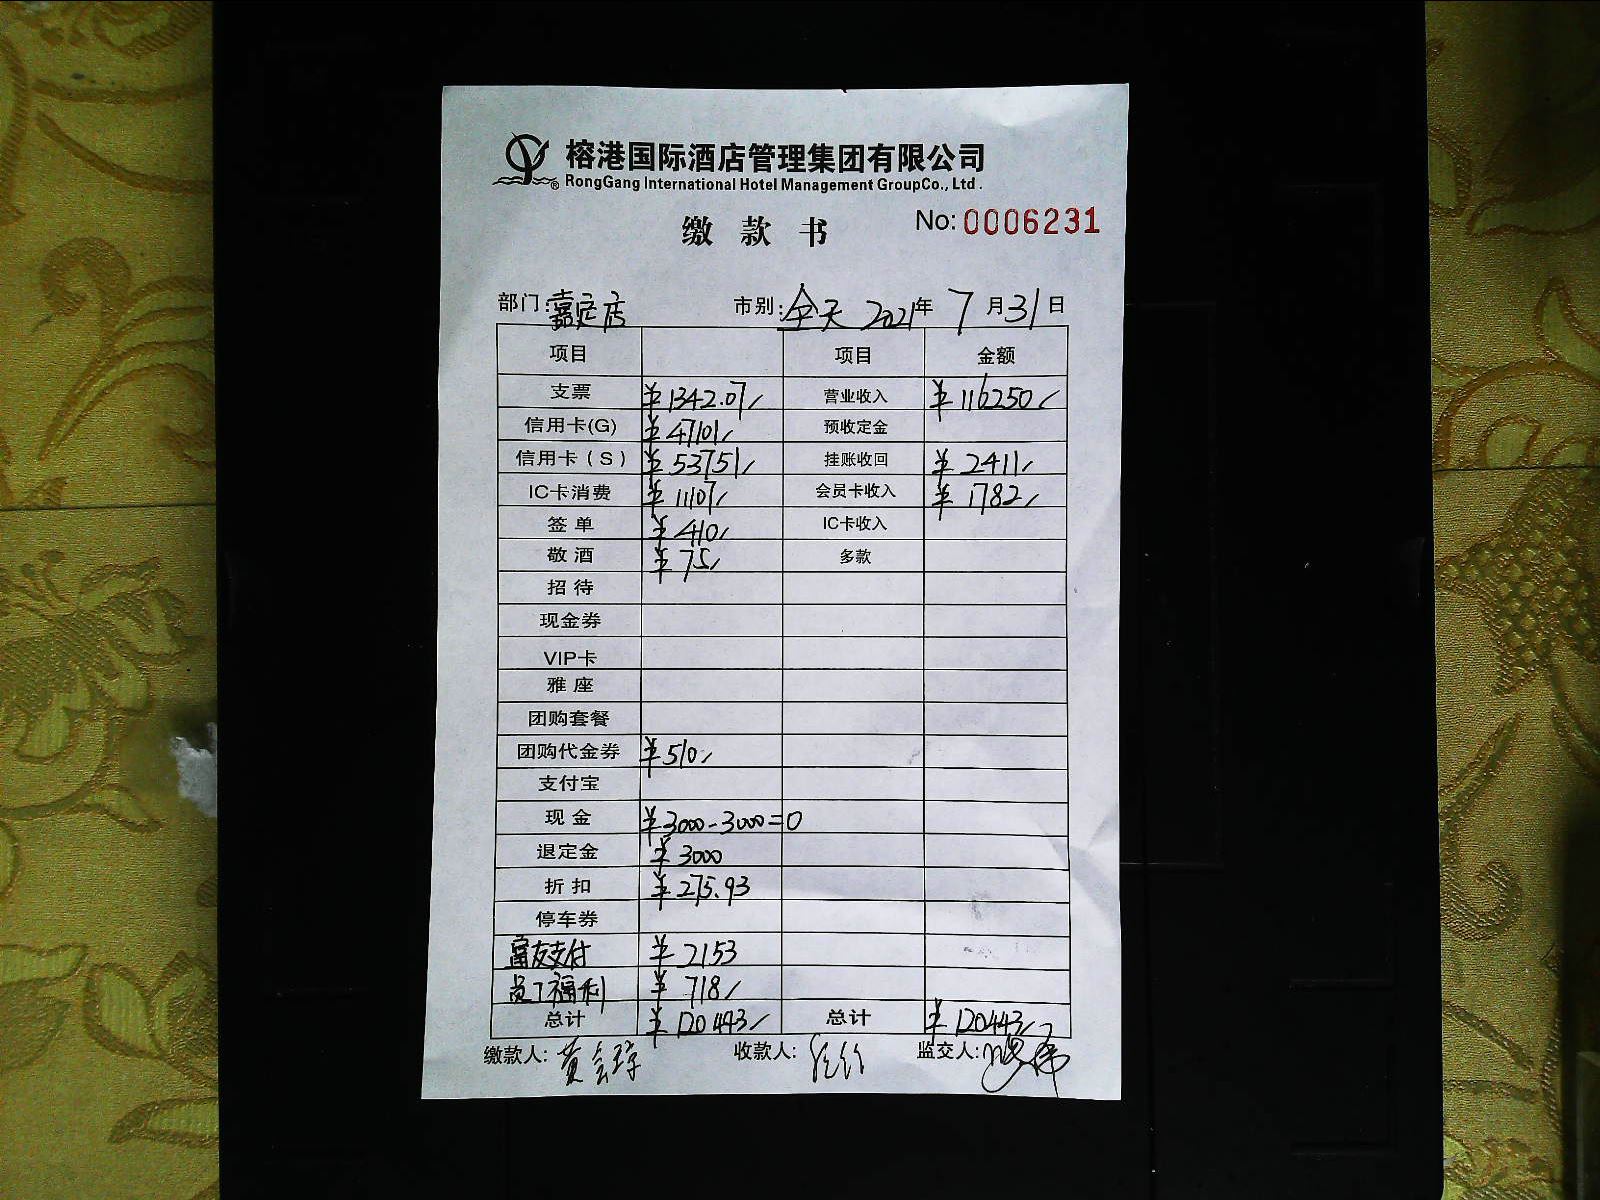 榕港国际酒店管理集团有限公司
RongGang International Hotel Management GroupCo., Ltd.
缴款书 No: 0006231
部门: 嘉定店 市别: 全天 2021年 7月31日
项目 项目 金额
支票 ¥1342.07/ 营业收入 ¥116250/
信用卡(G) ¥47101/ 预收定金
信用卡(S) ¥53751/ 挂账收回 ¥2411/
IC卡消费 ¥11107/ 会员卡收入 ¥1782/
签单 ¥410/ IC卡收入
敬酒 ¥75/ 多款
招待
现金券
VIP卡
雅座
团购套餐
团购代金券 ¥510/
支付宝
现金 ¥3000-3000=0
退定金 ¥3000
折扣 ¥275.93
停车券
富友支付 ¥2153
员工福利 ¥718/
总计 ¥120443/ 总计 ¥120443/
缴款人: 黄 收款人: 监交人: